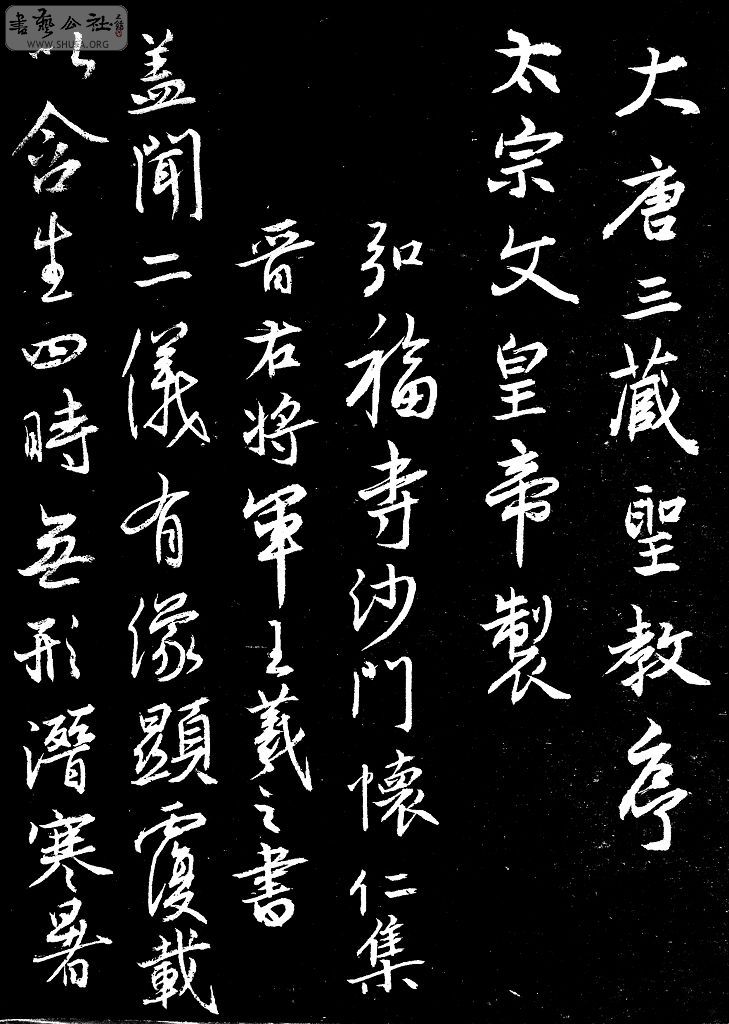 大唐三藏聖教序
太宗文皇帝製
弘福寺沙門懷仁集
晉右將軍王羲之書
蓋聞二儀有像顯覆載
以含生四時無形潛寒暑
書藝公社
WWW.SHUFA.ORG